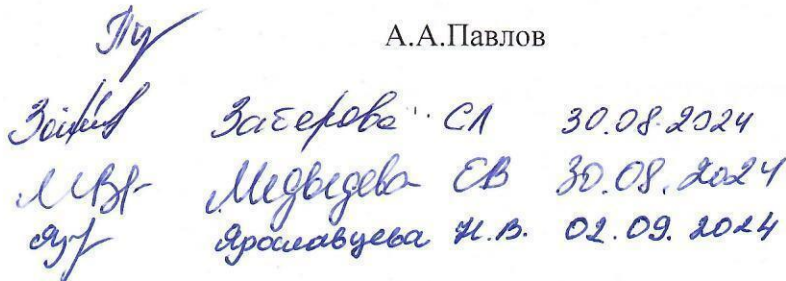 А.А.Павлов
СЛ 30.08.2024
Медведева ЕВ 30.08.2024
Ярославцева Н.В. 02.09.2024